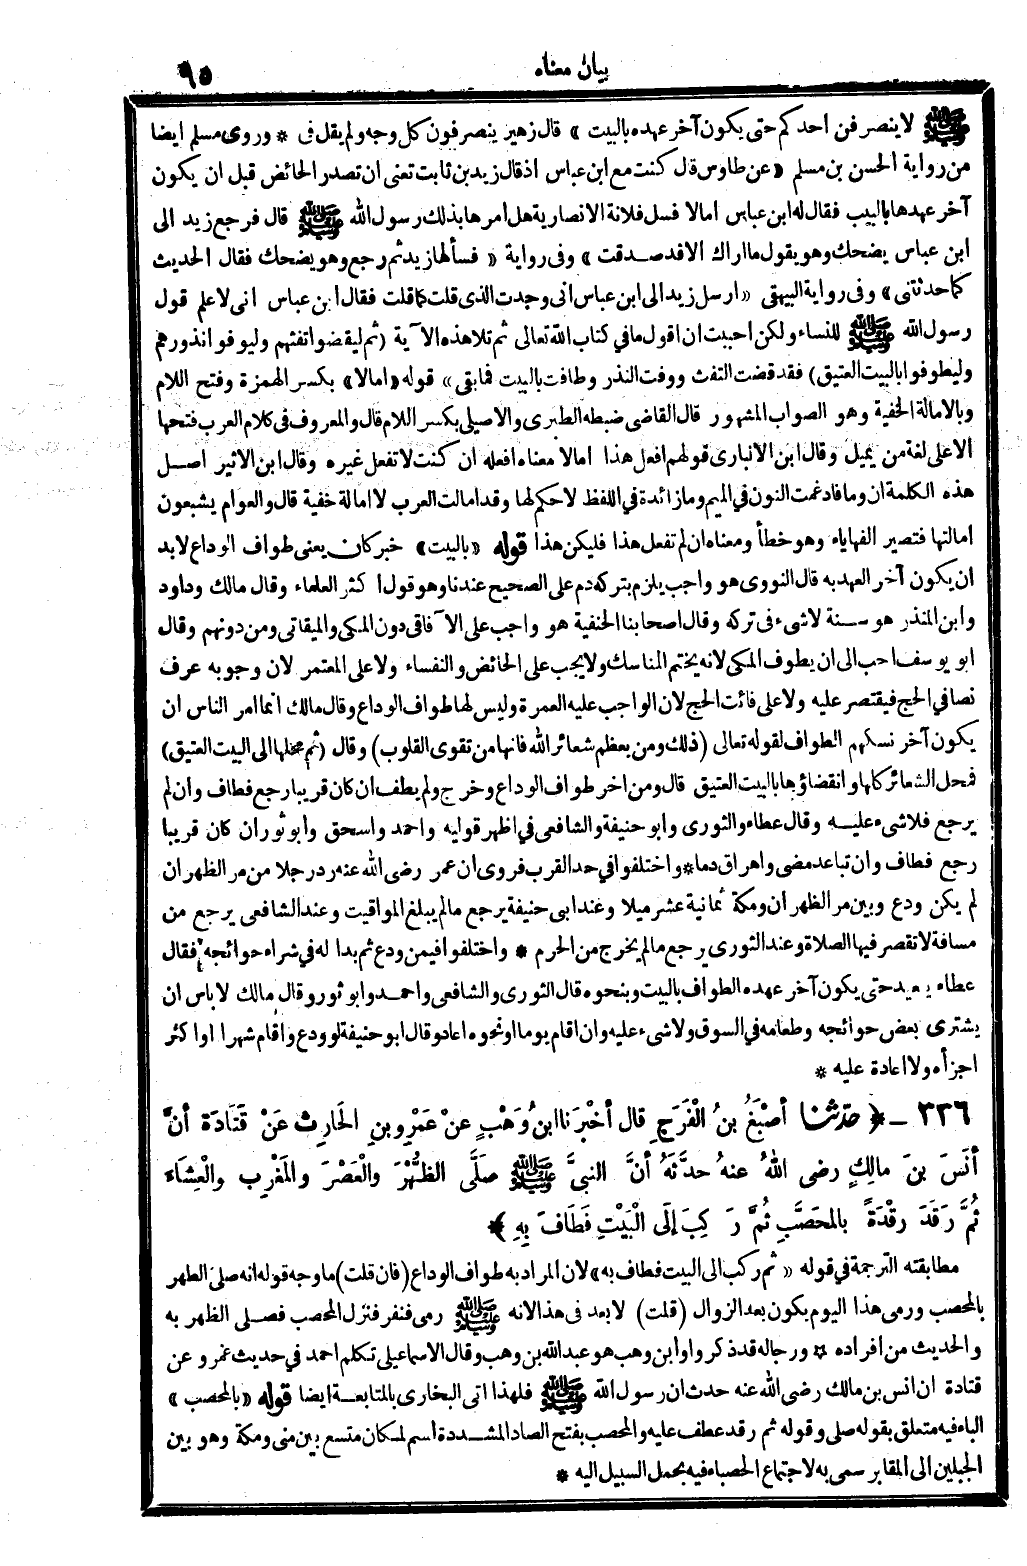 بيان معناه
٩٥
ﷺ لا ينصرفن احدكم حتى يكون آخر عهده بالبيت » قال زهير ينصرفون كل وجه ولم يقل فى * وروى مسلم ايضا
من رواية الحسن بن مسلم « عن طاوس قال كنت مع ابن عباس اذ قال زيد بن ثابت تفتى ان تصدر الحائض قبل ان يكون
آخر عهدها بالبيت فقال له ابن عباس امالا فسل فلانة الانصارية هل امرها بذلك رسول الله ﷺ قال فرجع زيد الى
ابن عباس يضحك وهو يقول ما اراك الا قد صدقت » وفى رواية « فسألها زيد ثم رجع وهو يضحك فقال الحديث
كما حدثتنى » وفى رواية البيهقى « ارسل زيد الى ابن عباس انى وجدت الذى قلت كما قلت فقال ابن عباس انى لاعلم قول
رسول الله ﷺ للنساء ولكن احببت ان اقول ما في كتاب الله تعالى ثم تلا هذه الآية (ثم ليقضوا تفثهم وليوفوا نذورهم
وليطوفوا بالبيت العتيق) فقد قضت التفث ووفت النذر وطافت بالبيت فما بقى » قوله «امالا» بكسر الهمزة وفتح اللام
وبالامالة الخفية وهو الصواب المشهور قال القاضى ضبطه الطبرى والاصيلى بكسر اللام قال والمعروف فى كلام العرب فتحها
الا على لغة من يميل وقال ابن الانبارى قولهم افعل هذا امالا معناه افعله ان كنت لا تفعل غيره وقال ابن الاثير اصل
هذه الكلمة ان وما فادغمت النون في الميم وما زائدة في اللفظ لا حكم لها وقد امالت العرب لا امالة خفية قال والعوام يشبعون
امالتها فتصير الفها ياء وهو خطأ ومعناه ان لم تفعل هذا فليكن هذا قوله «بالبيت» خبر كان يعنى طواف الوداع لا بد
ان يكون آخر العهد به قال النووى هو واجب يلزم بتركه دم على الصحيح عندنا وهو قول اكثر العلماء وقال مالك وداود
وابن المنذر هو سنة لا شىء فى تركه وقال اصحابنا الحنفية هو واجب على الآفاقى دون المكى والميقاتى ومن دونهم وقال
ابو يوسف احب الى ان يطوف المكى لانه يختم المناسك ولا يجب على الحائض والنفساء ولا على المعتمر لان وجوبه عرف
نصا في الحج فيقتصر عليه ولا على فائت الحج لان الواجب عليه العمرة وليس لها طواف الوداع وقال مالك انما امر الناس ان
يكون آخر نسكهم الطواف لقوله تعالى (ذلك ومن يعظم شعائر الله فانها من تقوى القلوب) وقال (ثم محلها الى البيت العتيق)
فمحل الشعائر كلها وانقضاؤها بالبيت العتيق قال ومن اخر طواف الوداع وخرج ولم يطف ان كان قريبا رجع فطاف وان لم
يرجع فلا شىء عليه وقال عطاء والثورى وابو حنيفة والشافعى في اظهر قوليه واحمد واسحق وابو ثور ان كان قريبا
رجع فطاف وان تباعد مضى واهراق دما * واختلفوا في حد القرب فروى ان عمر رضى الله عنه رد رجلا من مر الظهران
لم يكن ودع وبين مر الظهران ومكة ثمانية عشر ميلا وعند ابى حنيفة يرجع ما لم يبلغ المواقيت وعند الشافعى يرجع من
مسافة لا تقصر فيها الصلاة وعند الثورى يرجع ما لم يخرج من الحرم * واختلفوا فيمن ودع ثم بدا له في شراء حوائجه فقال
عطاء يعيد حتى يكون آخر عهده الطواف بالبيت وبنحوه قال الثورى والشافعى واحمد وابو ثور وقال مالك لا باس ان
يشترى بعض حوائجه وطعامه في السوق ولا شىء عليه وان اقام يوما او نحوه اعاد وقال ابو حنيفة لو ودع واقام شهرا او اكثر
اجزأه ولا اعادة عليه *
٣٣٦ - ﴿ حدثنا أَصْبَغُ بنُ الْفَرَجِ قال أَخْبَرَنا ابنُ وَهْبٍ عنْ عَمْرِو بنِ الحَارِثِ عَنْ قَتَادَةَ أنَّ
أَنَسَ بنَ مالِكٍ رضى اللهُ عنهُ حدَّثَهُ أنَّ النبىَّ ﷺ صَلَّى الظُّهْرَ والْعَصْرَ والمَغْرِبَ والْعِشَاءَ
ثُمَّ رَقَدَ رقْدَةً بالمحَصَّبِ ثُمَّ رَكِبَ إلَى الْبَيْتِ فَطَافَ بِهِ ﴾
مطابقته الترجمة في قوله « ثم ركب الى البيت فطاف به» لان المراد به طواف الوداع (فان قلت) ما وجه قوله انه صلى الظهر
بالمحصب ورمى هذا اليوم يكون بعد الزوال (قلت) لا بعد فى هذا لانه ﷺ رمى فنفر فنزل المحصب فصلى الظهر به
والحديث من افراده * ورجاله قد ذكروا وابن وهب هو عبد الله بن وهب وقال الاسماعيلى تكلم احمد في حديث عمرو عن
قتادة ان انس بن مالك رضى الله عنه حدث ان رسول الله ﷺ فلهذا اتى البخارى بالمتابعة ايضا قوله «بالمحصب»
الباء فيه متعلق بقوله صلى وقوله ثم رقد عطف عليه والمحصب بفتح الصاد المشددة اسم لمكان متسع بين منى ومكة وهو بين
الجبلين الى المقابر سمى به لاجتماع الحصباء فيه بحمل السيل اليه *